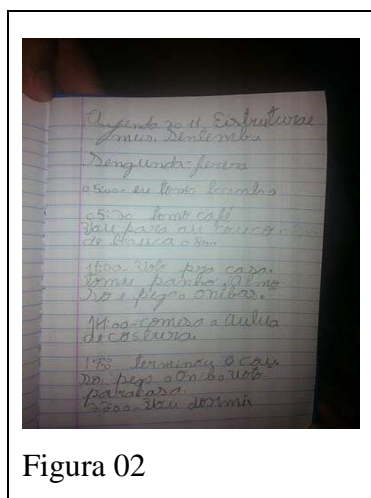 Agenda 2011. Eisfruturae
meis. Sentembro
Sengunda-ferera
05:00 eu tomo
05:30 tomo café
Vau para au
de
11:00 Volto pra casa.
tomu panho, almo
ro e pego o onibas.
14:00 - comesa a aulua
de costura.
terminou o cou
so pego o oni bo Volto
para casa
Vau dormir
Figura 02